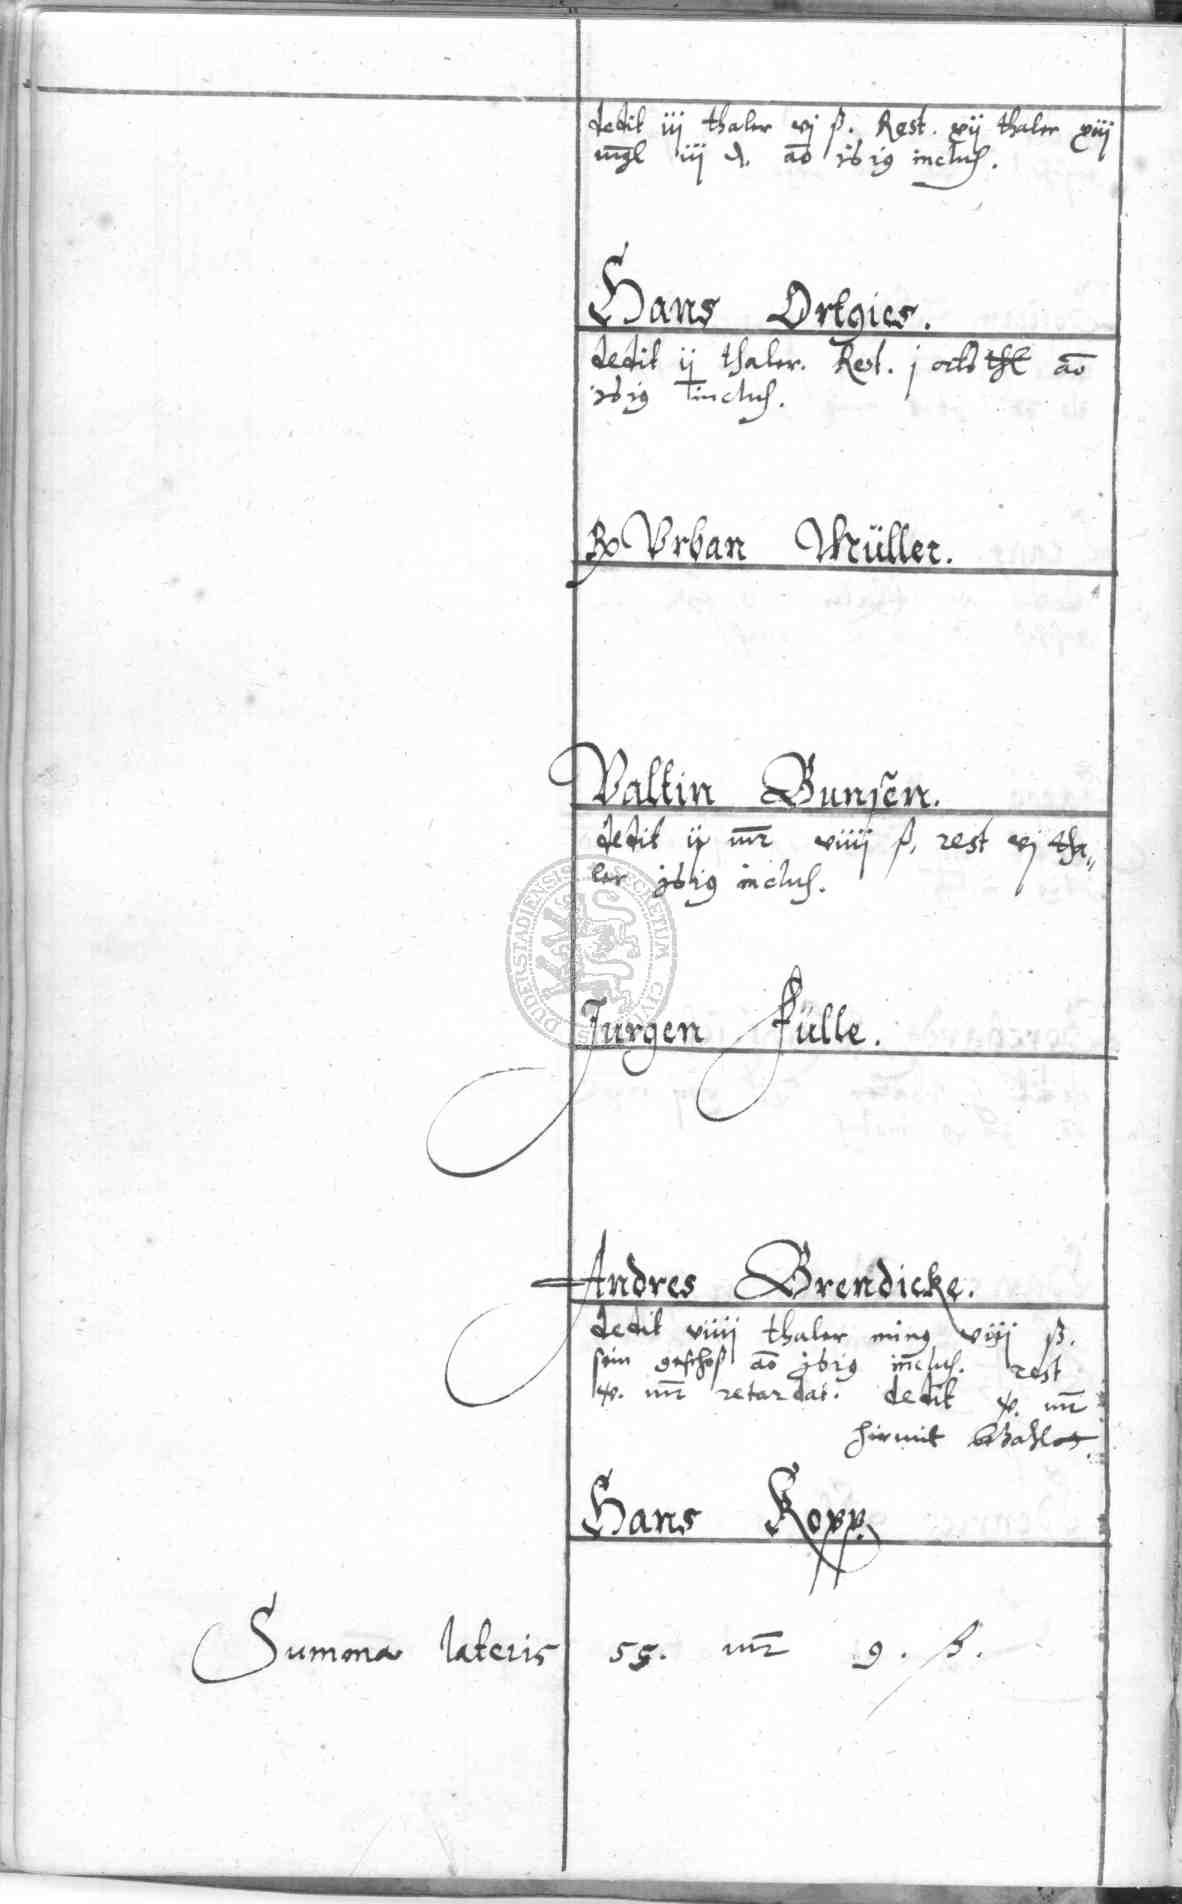 dedit iij thaler vj ß. Rest. xij thaler xiij
mgl iij d. ao 1619 inclus.
Hans Ortgies.
dedit ij thaler. Rest. j ortß thl ao
1619 inclus.
Vrban Müller.
Valtin Bunsen.
dedit ij mr viiij ß, rest vj tha„
ler 1619 inclus.
DUDERSTADIENSIS SECRETUM CIVI
Jurgen Fülle.
Andres Brendicke.
dedit viiij thaler ming viij ß.
sein geschoß ao 1619 inclus. rest
x. mr retardat. dedit x. mr
hirmit bezahlt.
Hans Kopp.
Summa lateris 55. mr 9. ß.